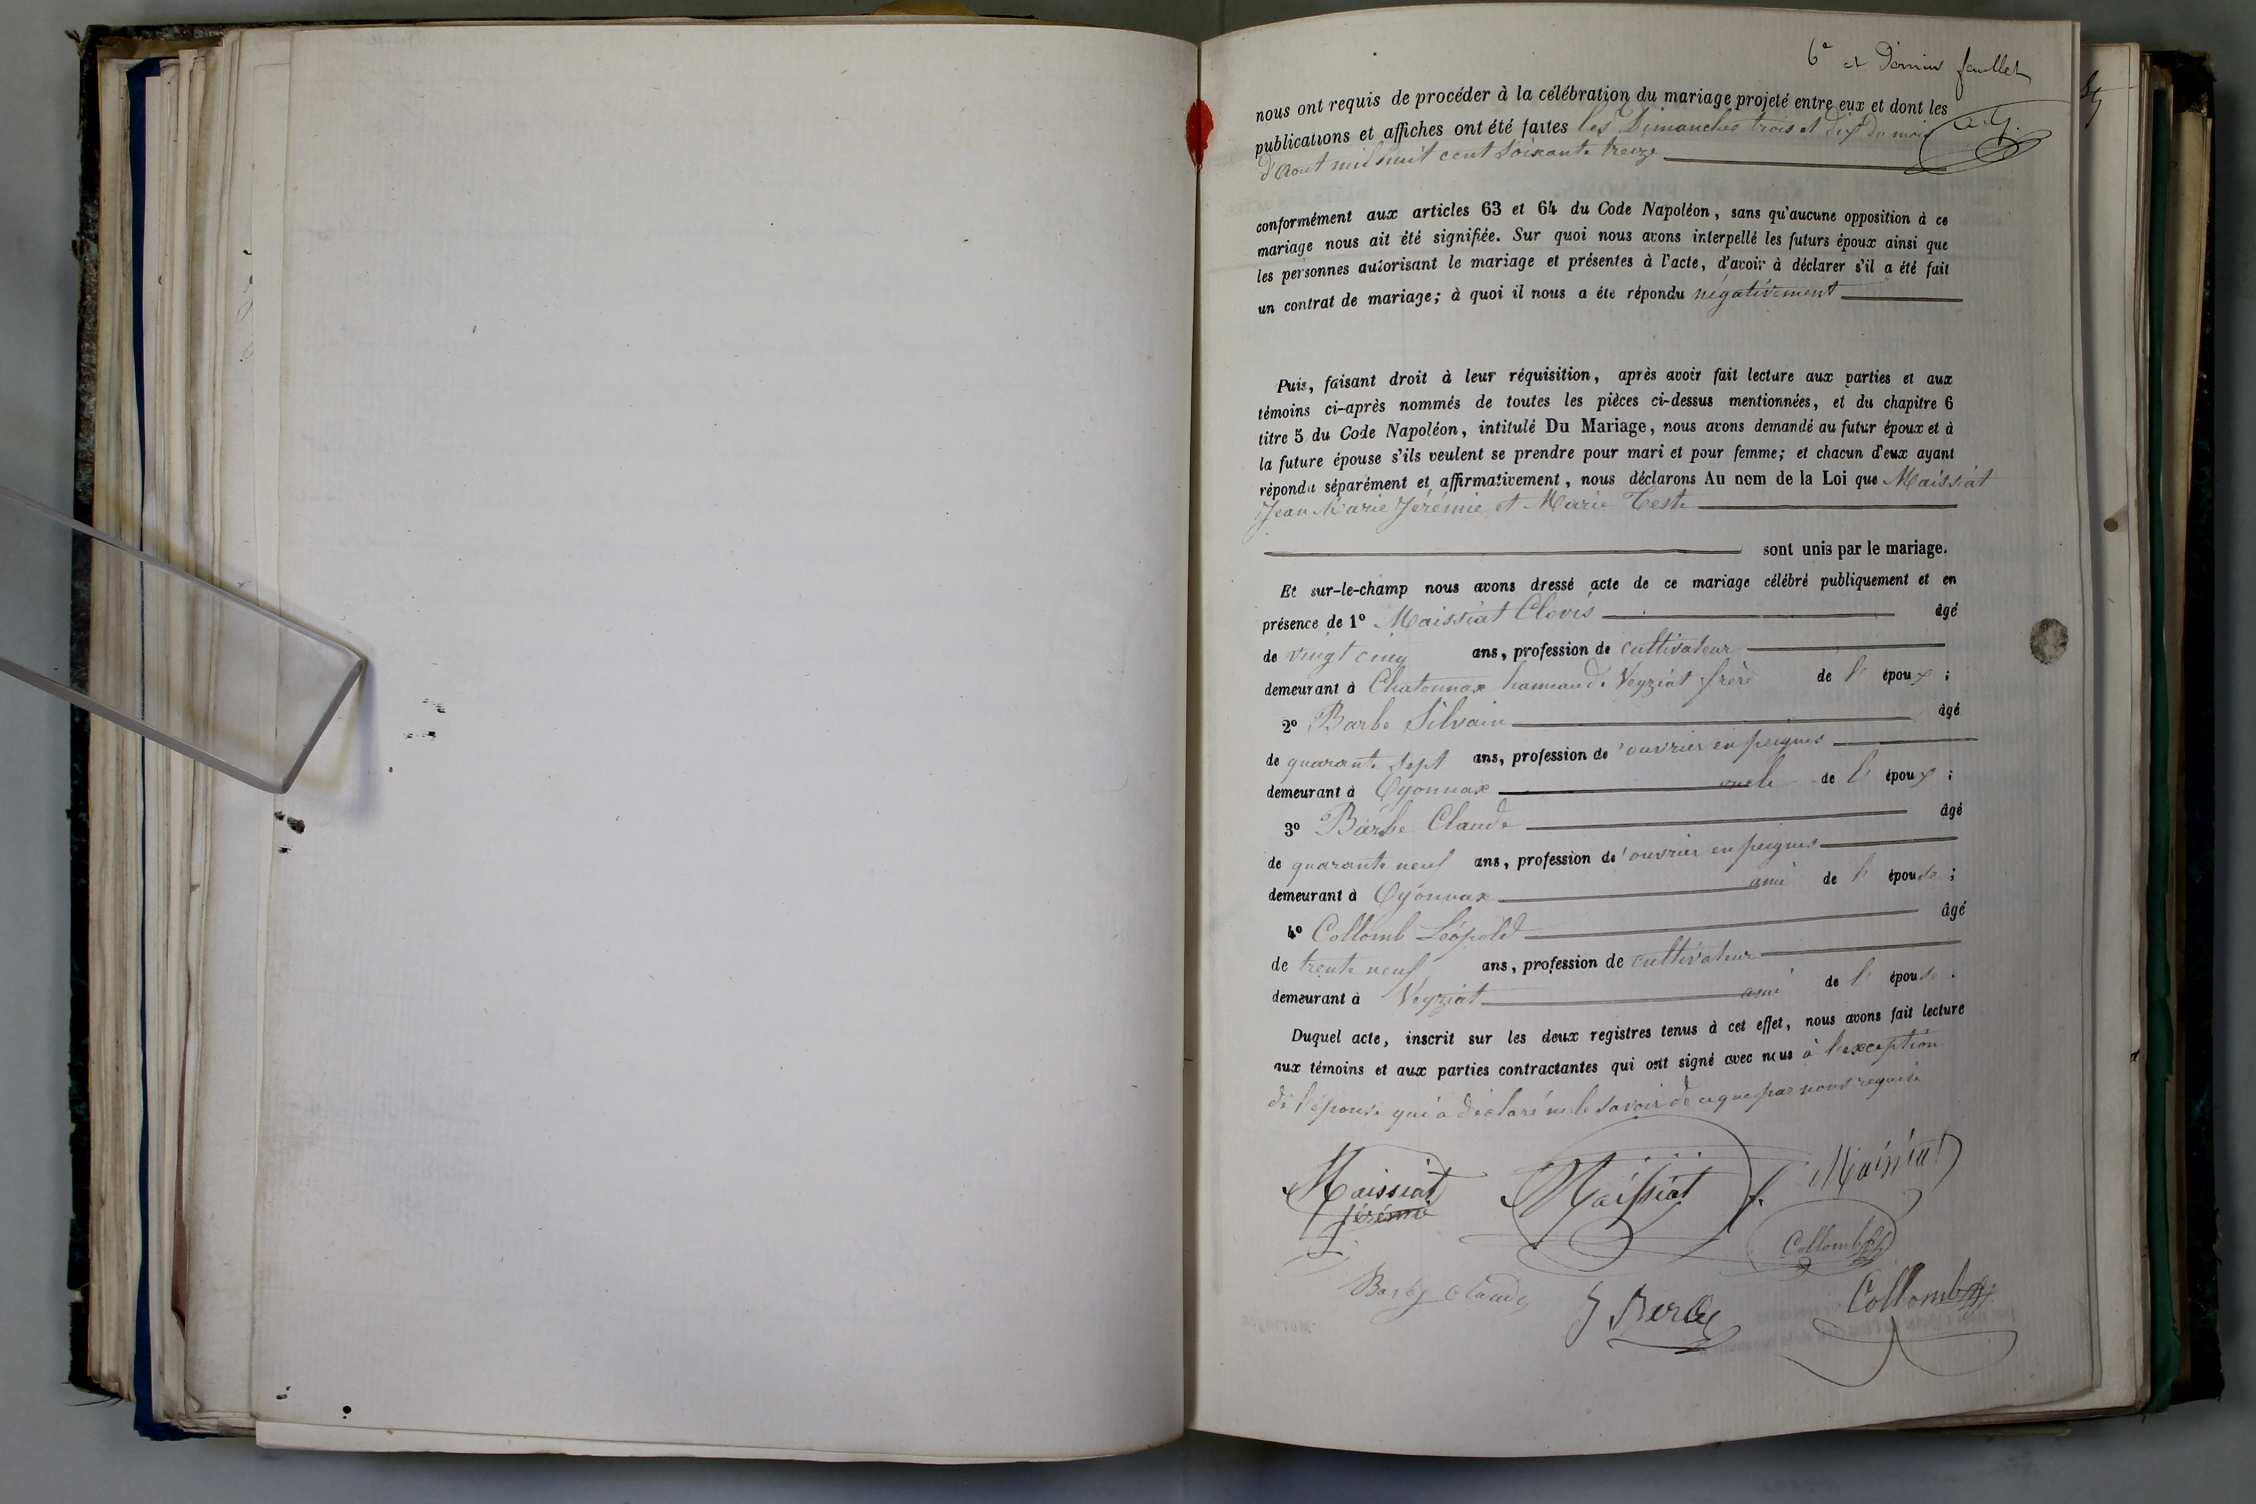 6e et Dernier feuillet
nous ont requis de procéder à la célébration du mariage projeté entre eux et dont les
publications et affiches ont été faites les Dimanches trois et dix du mois
d'Aout mil huit cent soixante treize
conformément aux articles 63 et 64 du Code Napoléon, sans qu'aucune opposition à ce
mariage nous ait été signifiée. Sur quoi nous avons interpellé les futurs époux ainsi que
les personnes autorisant le mariage et présentes à l'acte, d'avoir à déclarer s'il a été fait
un contrat de mariage; à quoi il nous a été répondu négativement
Puis, faisant droit à leur réquisition, après avoir fait lecture aux parties et aux
témoins ci-après nommés de toutes les pièces ci-dessus mentionnées, et du chapitre 6
titre 5 du Code Napoléon, intitulé Du Mariage, nous avons demandé au futur époux et à
la future épouse s'ils veulent se prendre pour mari et pour femme; et chacun d'eux ayant
répondu séparément et affirmativement, nous déclarons Au nom de la Loi que Maissiat
Jean Marie Jérémie et Marie Teste
sont unis par le mariage.
Et sur-le-champ nous avons dressé acte de ce mariage célébré publiquement et en
présence de 1º Maissiat Clovis âgé
de vingt cinq ans, profession de cultivateur
demeurant à Chatonnax hameau de Veyziat frère de l' époux ;
2º Barbe Silvain âgé
de quarante sept ans, profession de ouvrier en peignes
demeurant à Oyonnax oncle de l' époux ;
3º Barbe Claude âgé
de quarante neuf ans, profession de ouvrier en peignes
demeurant à Oyonnax ami de l' épouse ;
4º Collomb Léopold âgé
de trente neuf ans, profession de cultivateur
demeurant à Veyziat ami de l' épouse .
Duquel acte, inscrit sur les deux registres tenus à cet effet, nous avons fait lecture
aux témoins et aux parties contractantes qui ont signé avec nous à l'exception
de l'épouse qui a déclaré ne le savoir de ce que par nous requise
Maissiat Maissiat Maissiat
Jérémie
Collomb
Barbe Claude Collomb